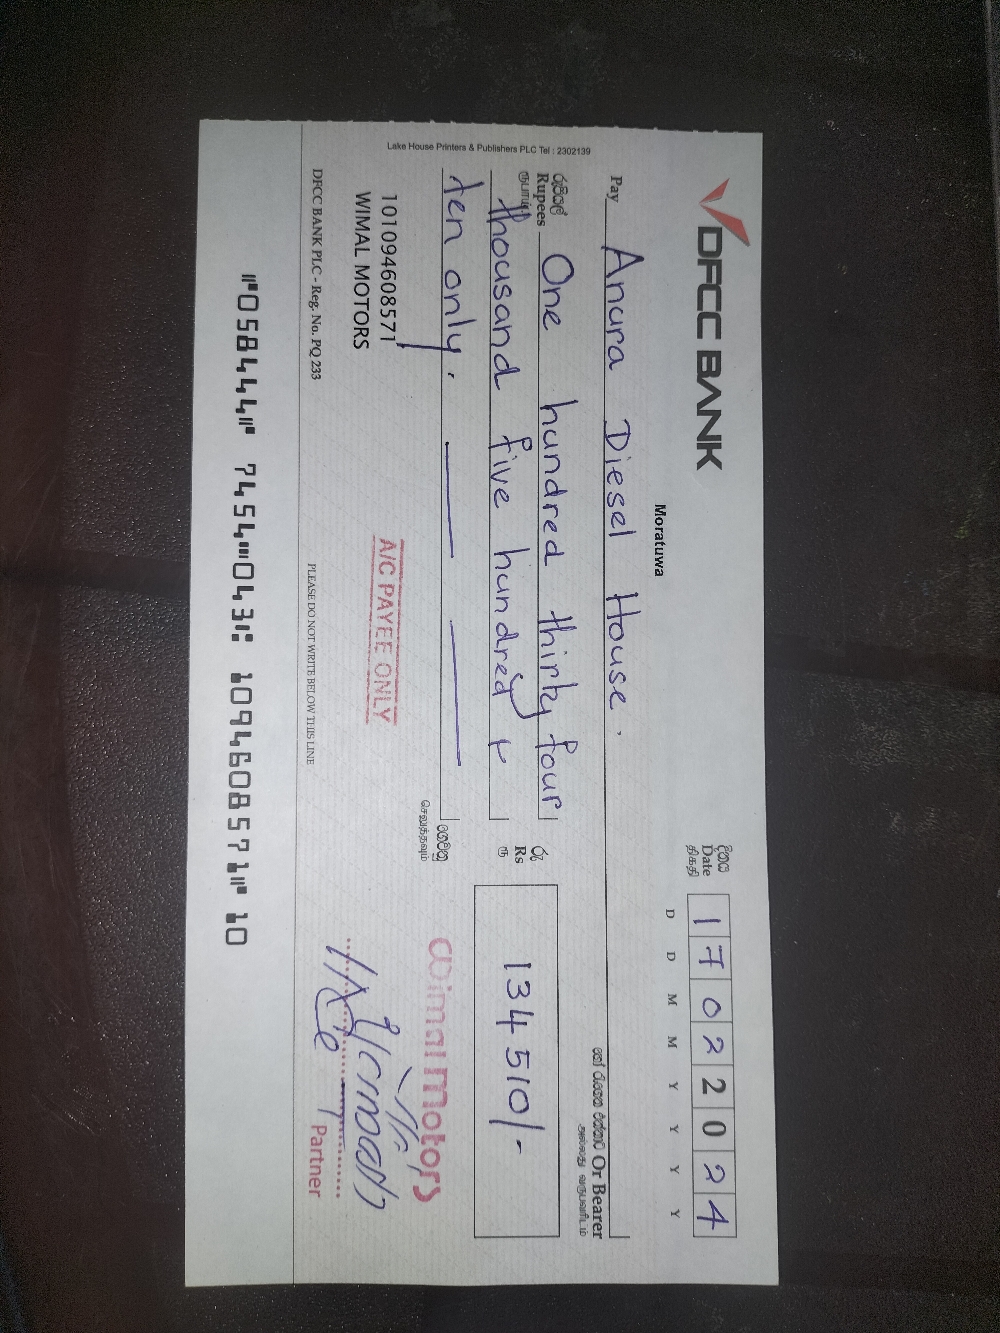 DFCC BANK
Moratuwa
දිනය
Date
திகதி
1 7 0 2 2 0 2 4
D D M M Y Y Y Y
Pay Anura Diesel House.
Or Bearer
රුපියල්
Rupees One hundred thirty four
ரூபாய்
thousand five hundred &
ten only.
ගෙවනු
රු
Rs
ரூ
134 510/-
Lake House Printers & Publishers PLC Tel : 2302139
101094608571
WIMAL MOTORS
A/C PAYEE ONLY
Wimal Motors
Partner
DFCC BANK PLC - Reg. No. PQ 233
PLEASE DO NOT WRITE BELOW THIS LINE
⑈058444⑈ 7454⑉043⑆ 1094608571⑈ 10